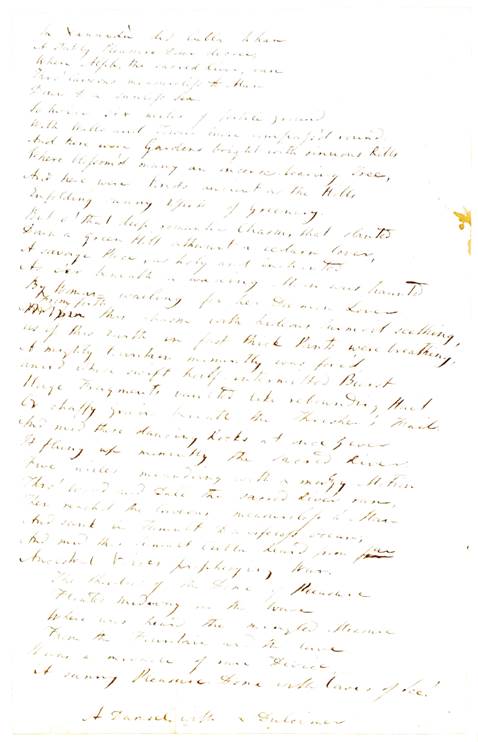 In Xannadù did Cubla Khan
A stately Pleasure Dome decree,
Where Alph, the sacred River, ran
Thro' Caverns measureless to Man
Down to a sunless Sea
So twice six miles of fertile ground
With Walls and Towers were compass'd round
And here were Gardens bright with sinuous Rills
Where blossom'd many an incense bearing Tree,
And here were Forests ancient as the Hills
Enfolding sunny Spots of Greenery.
But o! that deep romantic Chasm, that slanted
Down a green Hill athwart a cedarn Cover,
A savage Place, as holy and inchanted
As e'er beneath a waning Moon was haunted
By Woman wailing for her Dæmon Lover
From forth this Chasm with hideous turmoil seething,
as if this earth in fast thick Pants were breathing,
A mighty Fountain momently was forc'd
amid whose swift half intermitted Burst
Huge Fragments vaulted like rebounding Hail
Or chaffy grain beneath the Thresher's Flail
And mid these dancing Rocks at once & ever
It flung up momently the sacred River
Five miles meandring with a mazy Motion
Thro' Wood and Dale the sacred River ran,
Then reach'd the Caverns measureless to Man
And sank in Tumult to a lifeless Ocean;
And mid this Tumult Cubla heard from far
Ancestral Voices prophesying War.
The Shadow of the Dome of Pleasure
Floated midway on the Wave
Where was heard the mingled Measure
From the Fountain and the Cave
It was a miracle of rare Device
A sunny Pleasure Dome with Caves of Ice!
A Damsel with a Dulcimer